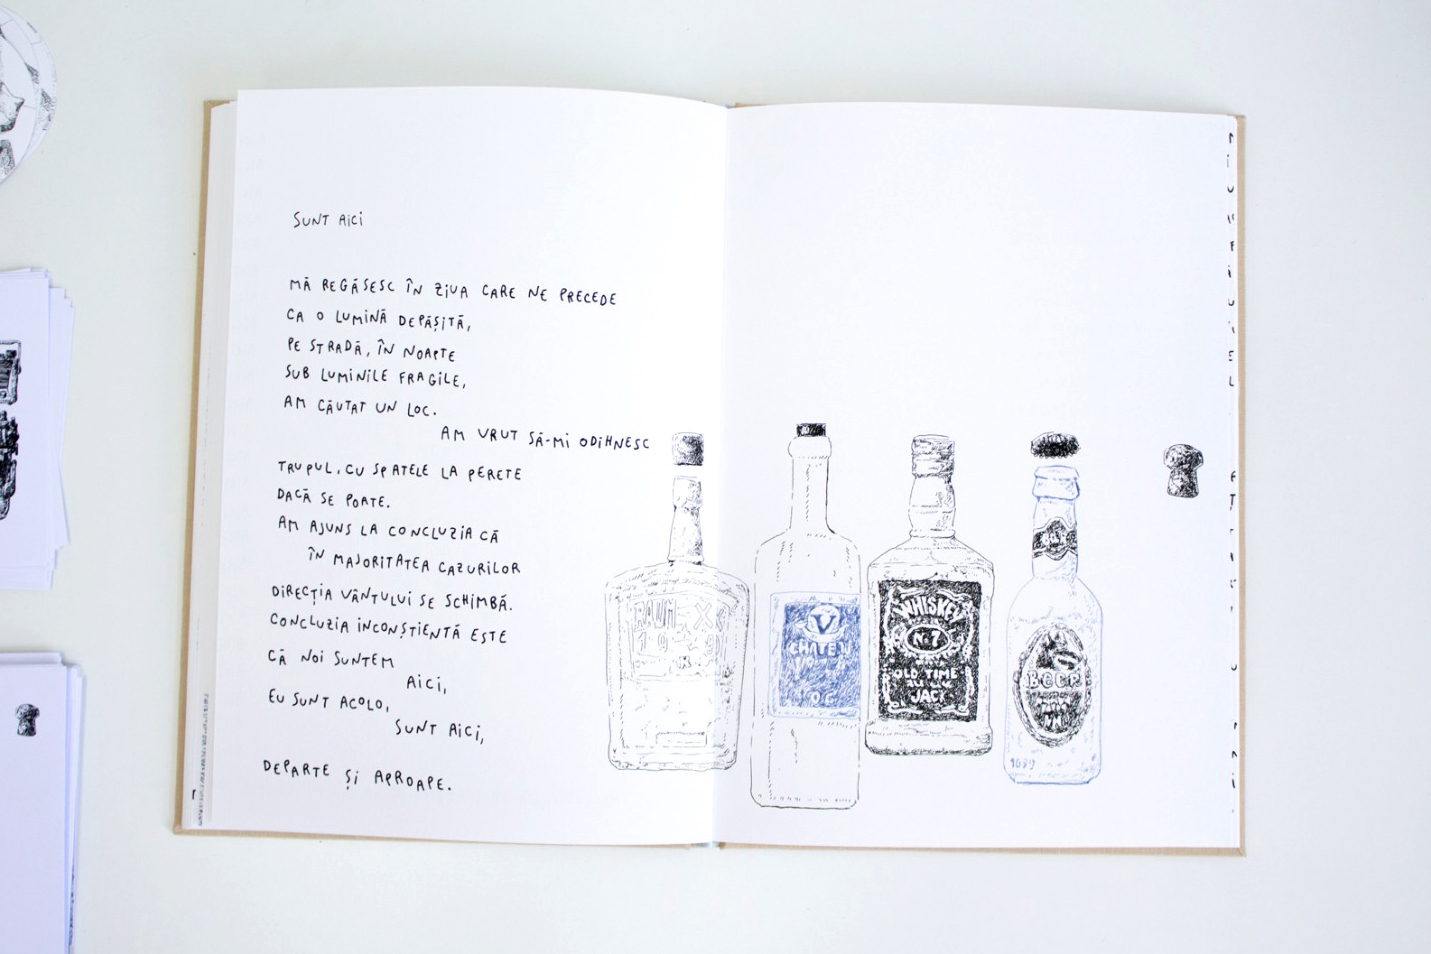 SUNT AICI
MĂ REGĂSESC ÎN ZIUA CARE NE PRECEDE
CA O LUMINĂ DEPĂȘITĂ,
PE STRADĂ, ÎN NOAPTE
SUB LUMINILE FRAGILE,
AM CĂUTAT UN LOC.
AM VRUT SĂ-MI ODIHNESC
TRUPUL, CU SPATELE LA PERETE
DACĂ SE POATE.
AM AJUNS LA CONCLUZIA CĂ
ÎN MAJORITATEA CAZURILOR
DIRECȚIA VÂNTULUI SE SCHIMBĂ.
CONCLUZIA INCONȘTIENTĂ ESTE
CĂ NOI SUNTEM
AICI,
EU SUNT ACOLO,
SUNT AICI,
DEPARTE ȘI APROAPE.
V
WHISKEY
No.7
OLD TIME
JACK
BECP
1689